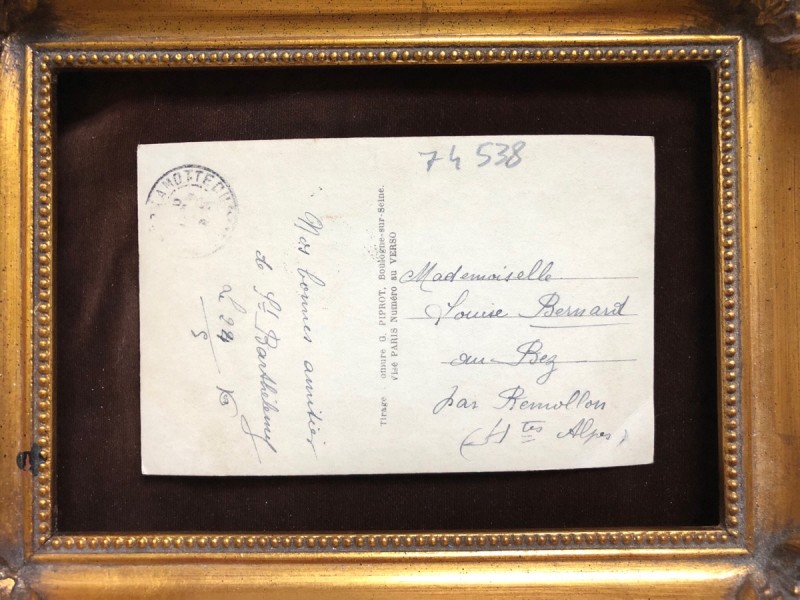 74 538
LAMOTTE
Nos bonnes amitiés
de St Barthélemy
Le 24
5
Tirage offert G. PIPROT, Boulogne-sur-Seine.
Visé PARIS Numéro au VERSO
Mademoiselle
Louise Bernard
au Bez
par Remollon
(Htes Alpes)